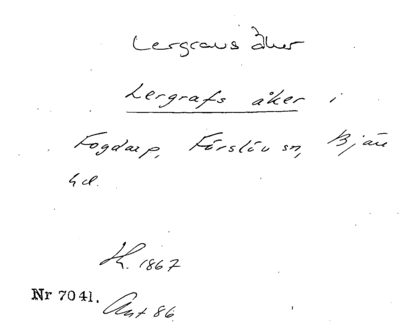 Lergravs åker
Lergrafs åker i
Fogdarp, Förslöv sn, Bjäre
hd.
H. 1867
Nr 7041.
Ant 86